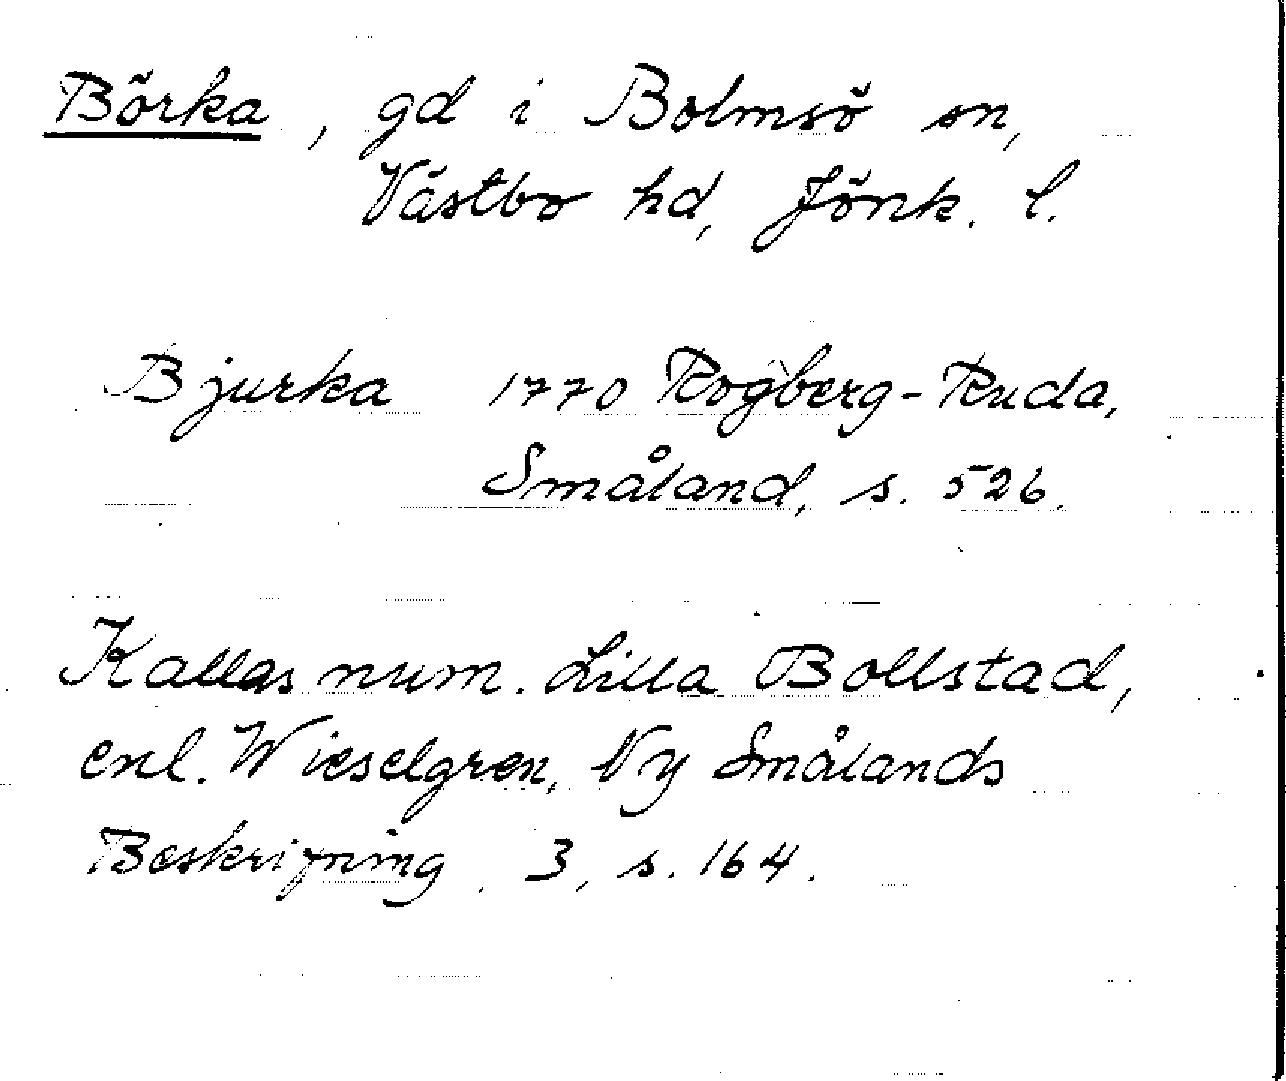 Börka, gd i Bolmsö sn,
Västbo hd, Jönk. l.
Bjurka 1770 Rogberg-Ruda,
Småland, s. 526.
Kallas num. Lilla Bollstad,
enl. Wieselgren, Ny Smålands
Beskrifning 3, s. 164.